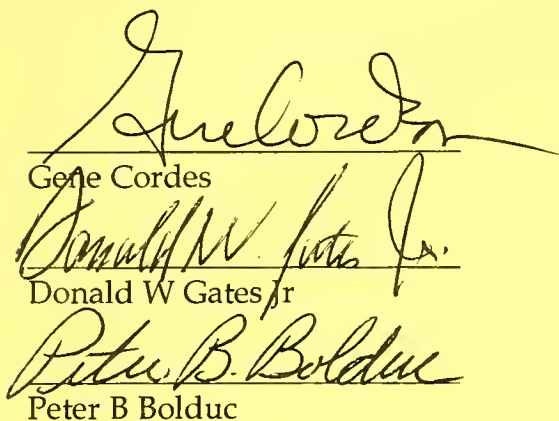 Gene Cordes
Gene Cordes
Donald W. Gates Jr.
Donald W Gates Jr
Peter B. Bolduc
Peter B Bolduc